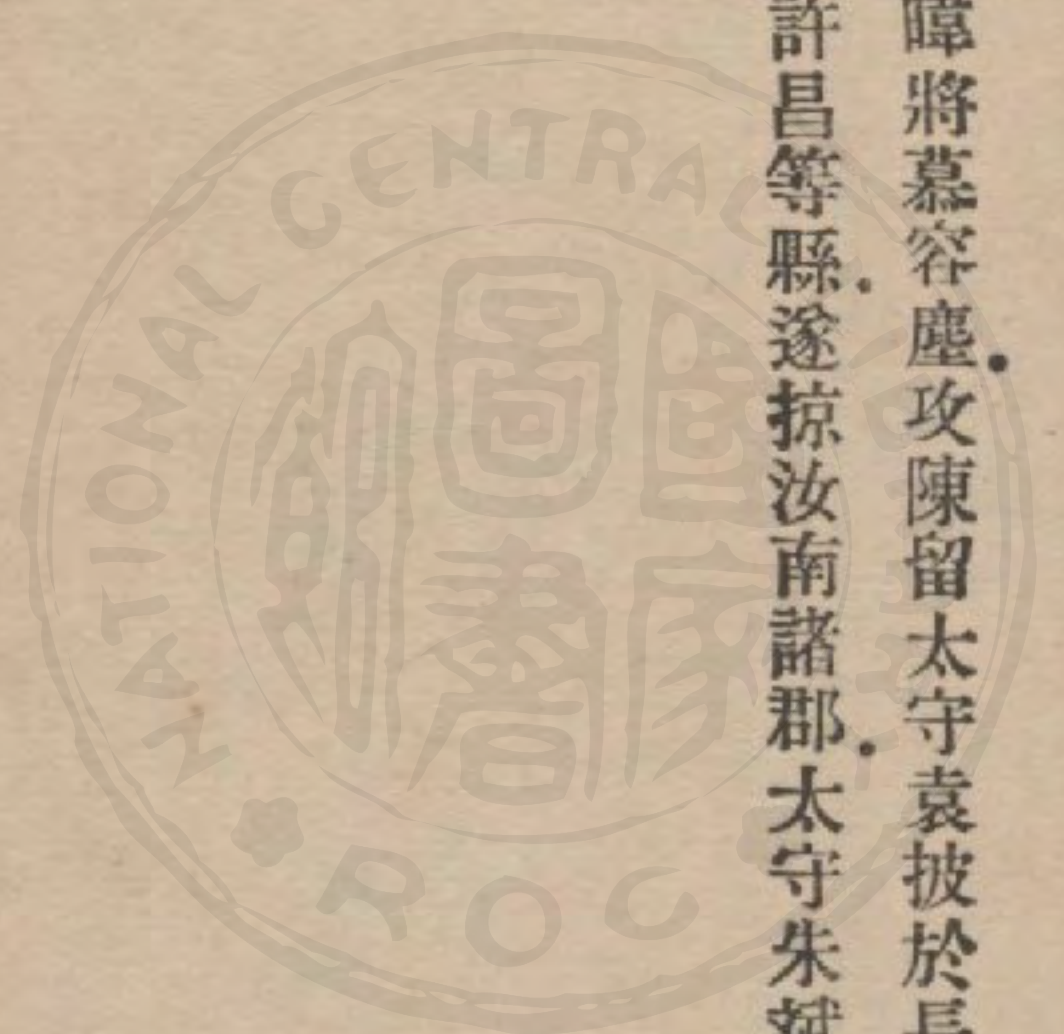 暐將慕容塵.攻陳留太守袁披於長
許昌等縣.遂掠汝南諸郡.太守朱斌
NATIONAL CENTRAL
國家圖書館
ROC